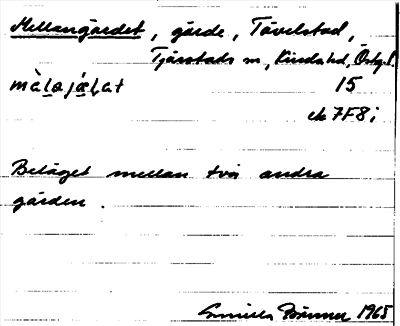 Mellangärdet, gärde, Tävelstad,
Tjärstads sn, Kinda hd, Östg.
màlajælat 15
ek 7F8i
Beläget mellan två andra
gärden.
Gunilla 1965